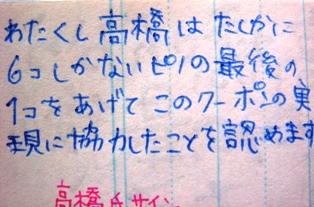 わたくし高橋はたしかに
6コしかないピノの最後の
1コをあげてこのクーポンの実
現に協力したことを認めます
高橋氏サイン